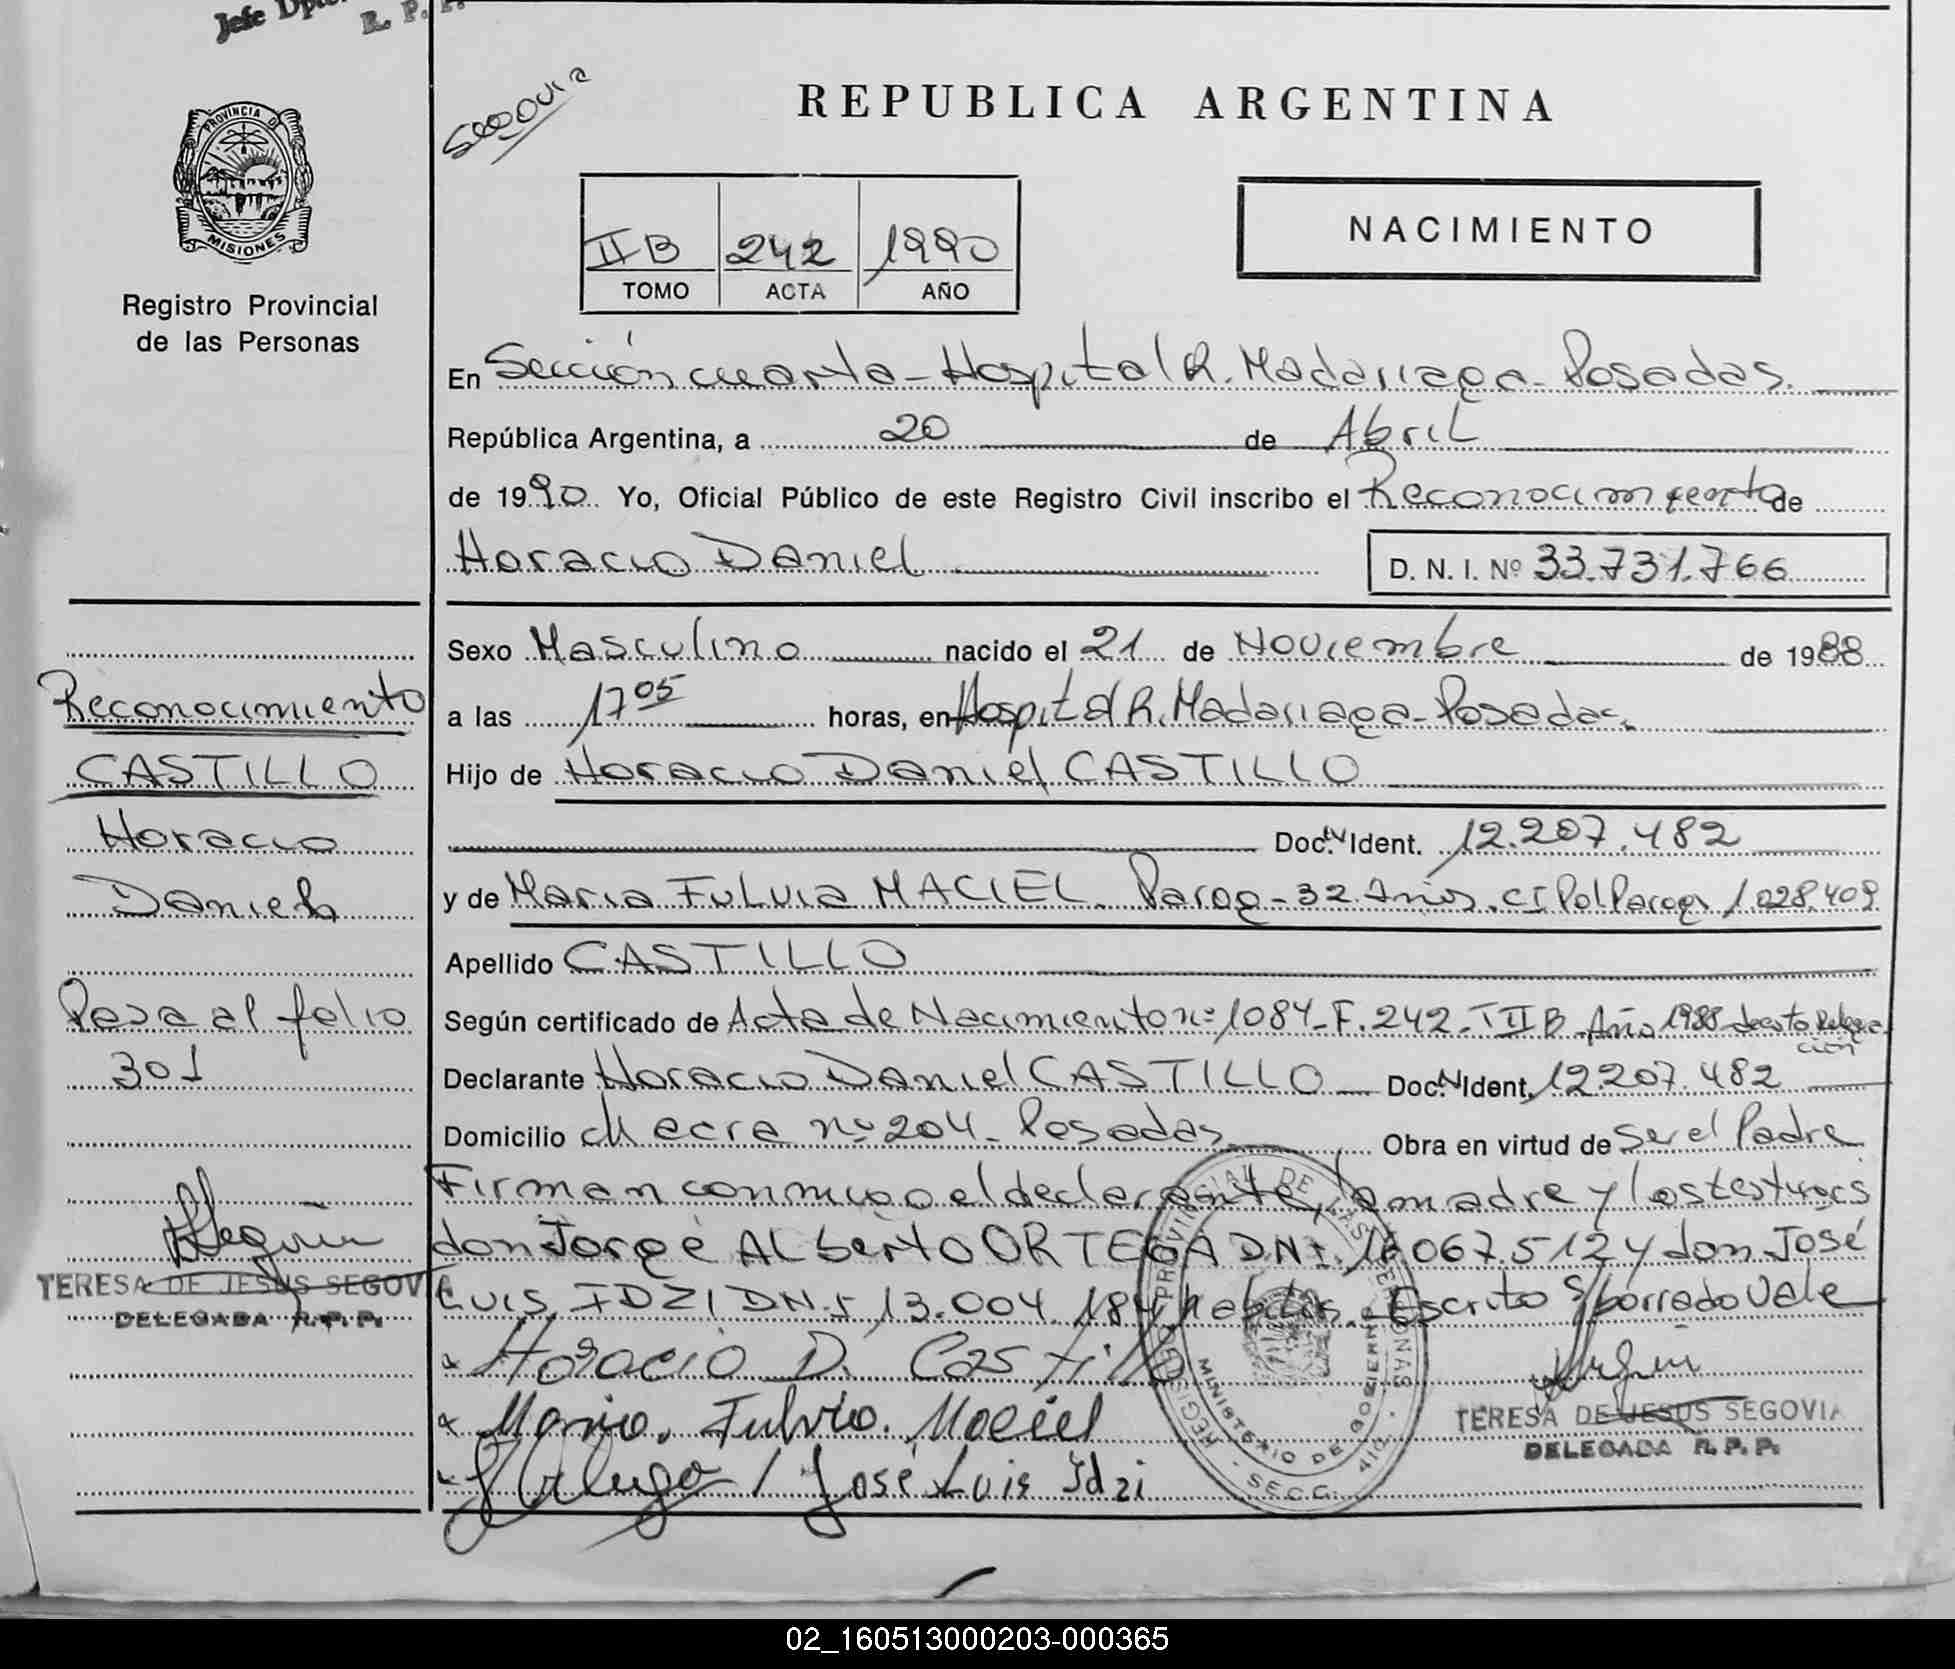 Jefe Dpto.
R. P. P.
PROVINCIA DE
MISIONES
Registro Provincial
de las Personas
Segovia
REPUBLICA ARGENTINA
II B 242 1990
TOMO ACTA AÑO
NACIMIENTO
En Sección cuarta - Hospital R. Madariaga - Posadas.
República Argentina, a 20 de Abril
de 1990. Yo, Oficial Público de este Registro Civil inscribo el Reconocimiento de
Horacio Daniel
D. N. I. Nº 33.731.766
Sexo Masculino nacido el 21 de Noviembre de 1988
a las 17 05 horas, en Hospital R. Madariaga - Posadas.
Hijo de Horacio Daniel CASTILLO
Doc. N Ident. 12.207.482
y de Maria Fulvia MACIEL. Parag - 32 Años. CI Pol Parag 1.028.409
Apellido CASTILLO
Según certificado de Acta de Nacimiento nº 1084 - F. 242 - T II B - Año 1988
Declarante Horacio Daniel CASTILLO Doc. N Ident. 12.207.482
Domicilio Chacra nº 204 - Posadas Obra en virtud de ser el Padre
Firman conmigo el declarante, la madre y los testigos
don Jorge ALberto ORTEGA DNI. 16067.512 y don José
Luis IDZI DNI 13.004.184 habiles. Escrito s/borrado Vale
Horacio D. Castillo
Maria. Fulvia. Maciel
José Luis Idzi
TERESA DE JESUS SEGOVIA
DELEGADA R. P. P.
REGISTRO PROVINCIAL DE LAS PERSONAS
MINISTERIO DE GOBIERNO
SECC. 4ta
Reconocimiento
CASTILLO
Horacio
Daniel
Pasa al folio
301
TERESA DE JESUS SEGOVIA
DELEGADA R. P. P.
02_160513000203-000365